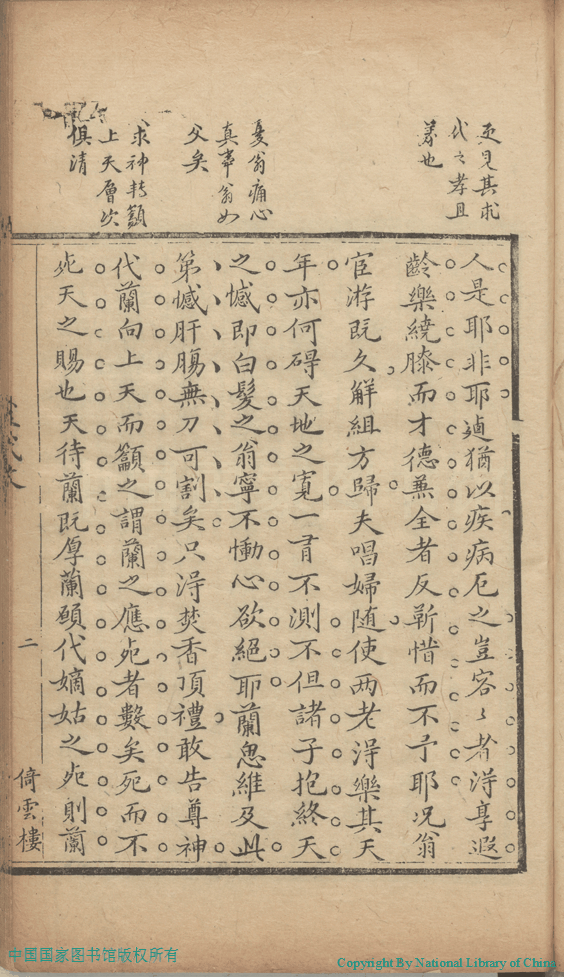 更見其求
代之孝且
義也
憂翁痛心
真事翁如
父矣
求神轉籲
上天層次
俱清
人是耶非耶廼猶以疾病厄之豈容〻者淂享遐
齡樂繞膝而才德兼全者反靳惜而不予耶况翁
宦游既久解組方歸夫唱婦随使两老淂樂其天
年亦何碍天地之寛一有不測不但諸子抱終天
之憾即白髮之翁寧不慟心欲絕耶蘭思維及此
第憾肝腸無刀可割矣只淂焚香頂禮敢告尊神
代蘭向上天而籲之謂蘭之應死者數矣死而不
死天之賜也天待蘭既厚蘭願代嫡姑之死則蘭
二
倚雲樓
中国国家图书馆版权所有
Copyright By National Library of China